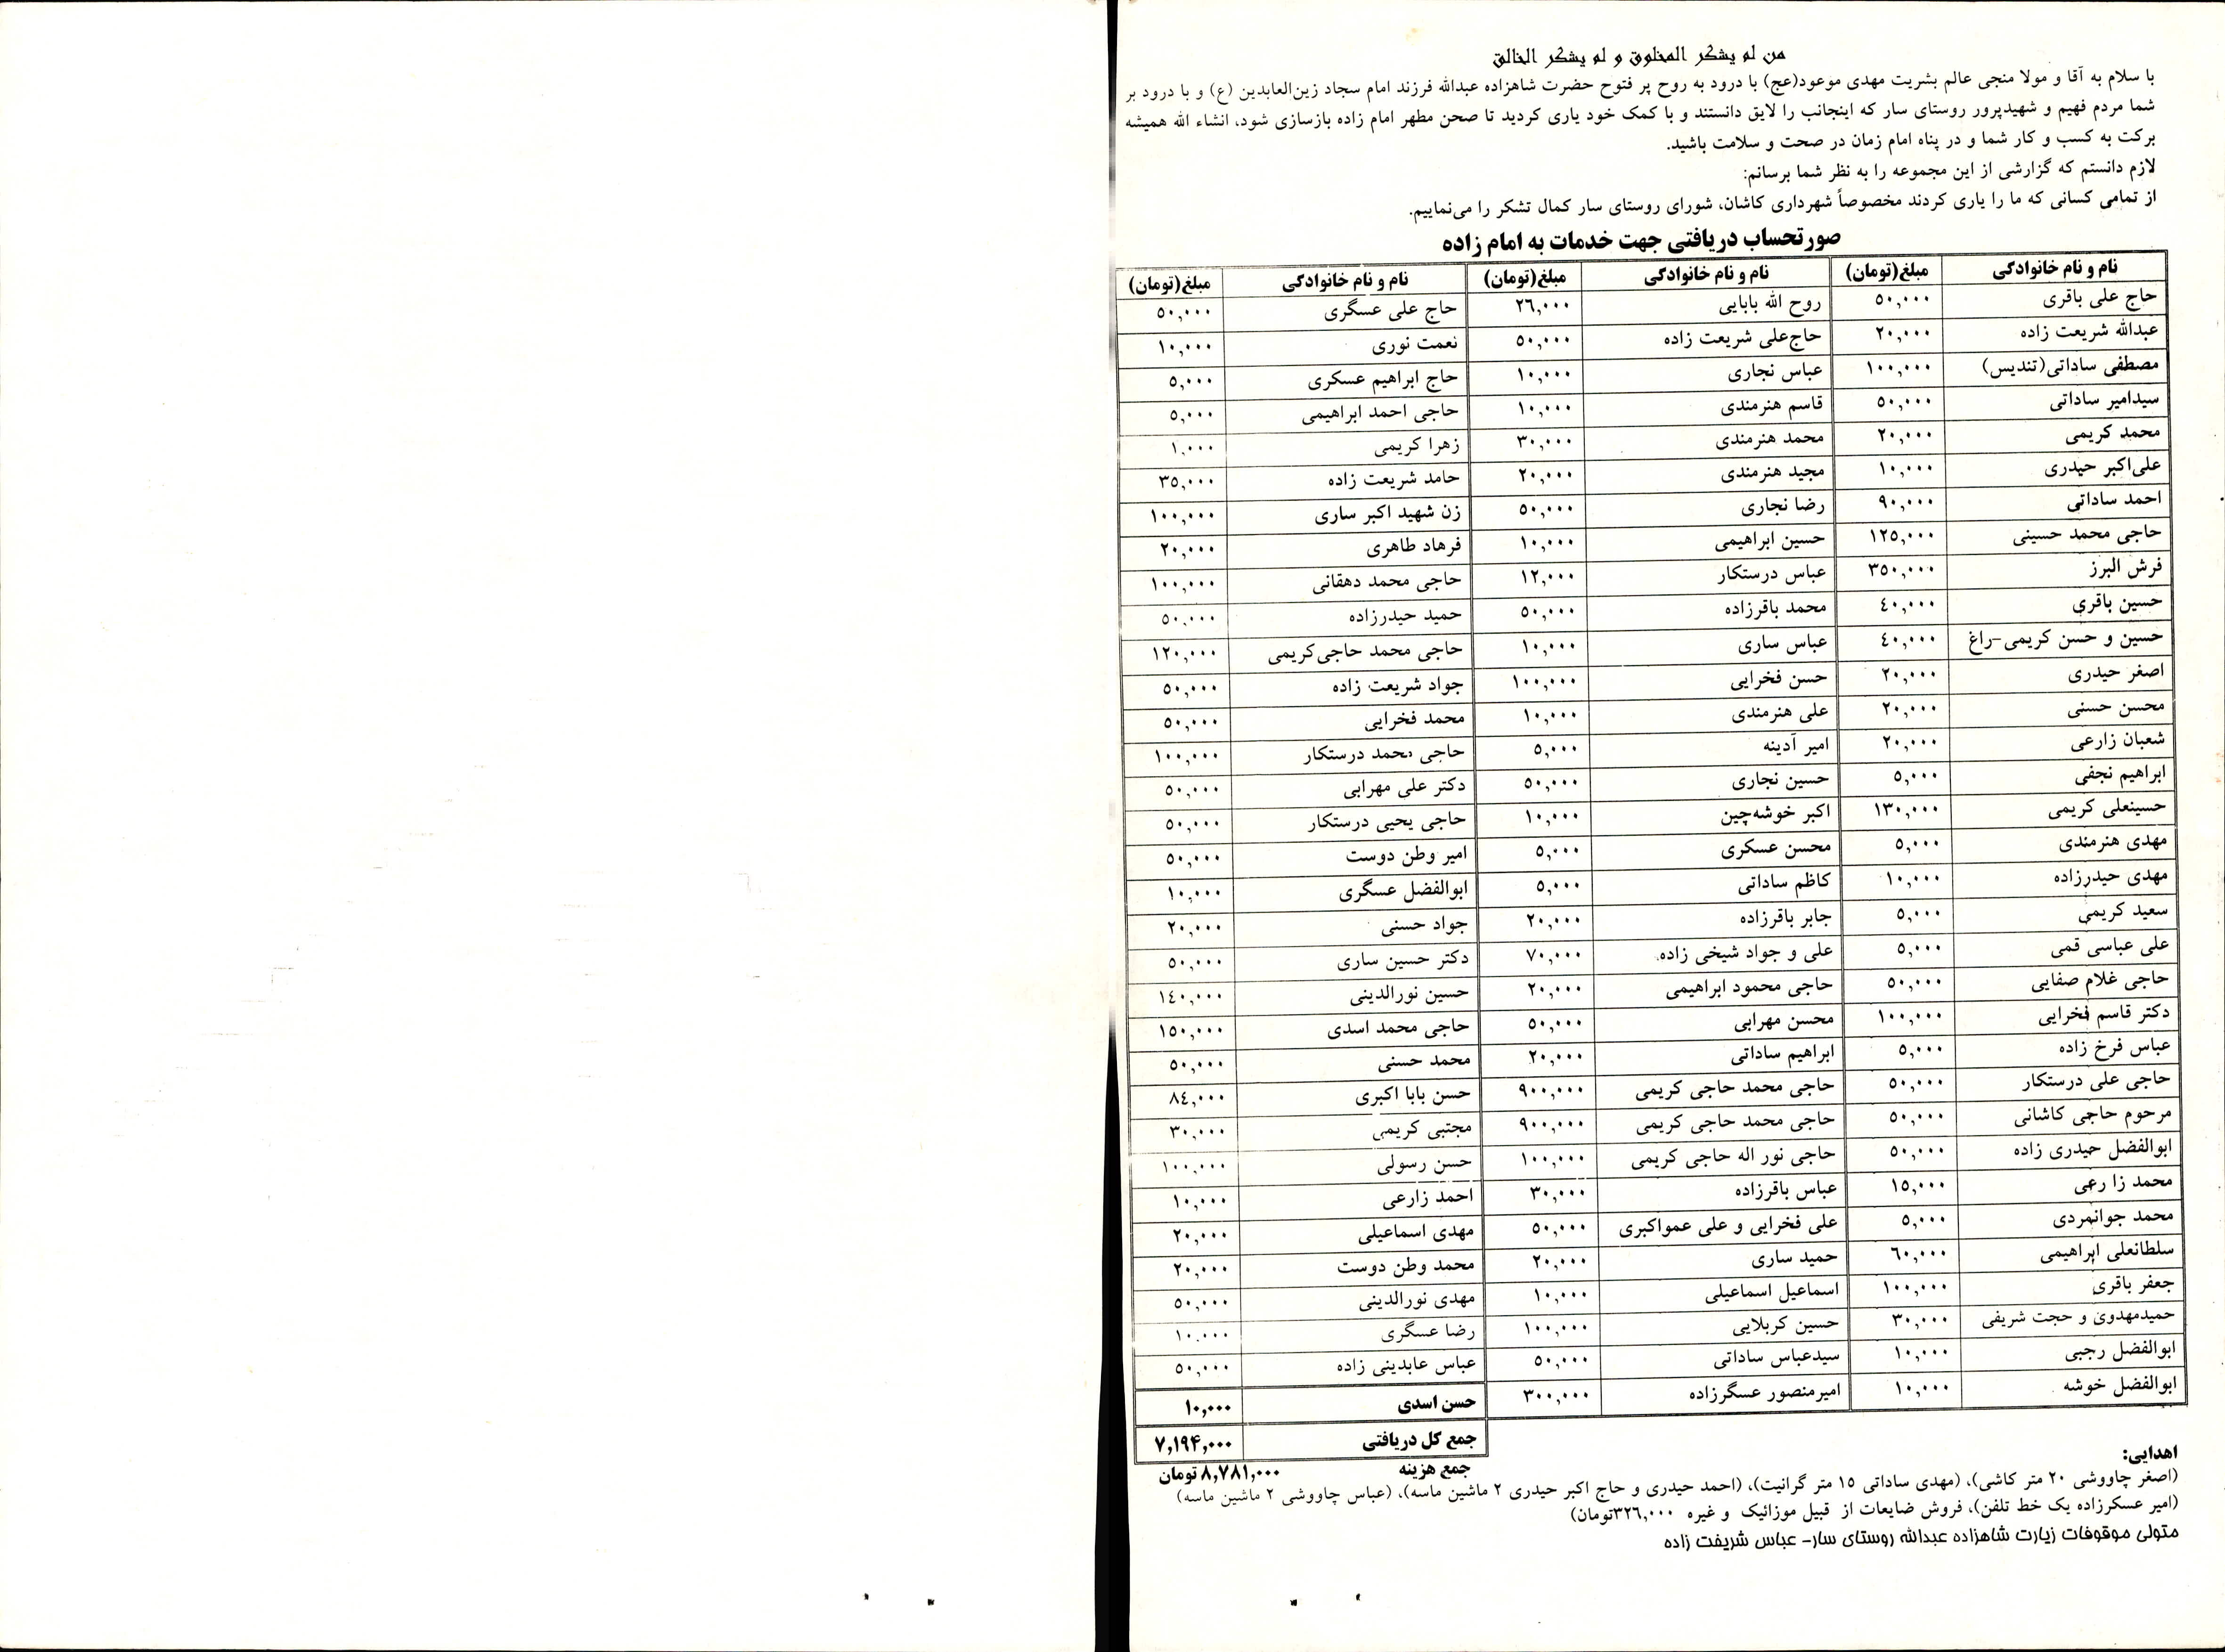 من لم یشکر المخلوق و لم یشکر الخالق
با سلام به آقا و مولا منجی عالم بشریت مهدی موعود(عج) با درود به روح پر فتوح حضرت شاهزاده عبدالله فرزند امام سجاد زین‌العابدین (ع) و با درود بر
شما مردم فهیم و شهیدپرور روستای سار که اینجانب را لایق دانستند و با کمک خود یاری کردید تا صحن مطهر امام زاده بازسازی شود، انشاء الله همیشه
برکت به کسب و کار شما و در پناه امام زمان در صحت و سلامت باشید.
لازم دانستم که گزارشی از این مجموعه را به نظر شما برسانم:
از تمامی کسانی که ما را یاری کردند مخصوصاً شهرداری کاشان، شورای روستای سار کمال تشکر را می‌نماییم.
صورتحساب دریافتی جهت خدمات به امام زاده
نام و نام خانوادگی مبلغ(تومان) نام و نام خانوادگی مبلغ(تومان) نام و نام خانوادگی مبلغ(تومان)
حاج علی باقری ۵۰,۰۰۰ روح الله بابایی ۲۶,۰۰۰ حاج علی عسگری ۵۰,۰۰۰
عبدالله شریعت زاده ۲۰,۰۰۰ حاج‌علی شریعت زاده ۵۰,۰۰۰ نعمت نوری ۱۰,۰۰۰
مصطفی ساداتی(تندیس) ۱۰۰,۰۰۰ عباس نجاری ۱۰,۰۰۰ حاج ابراهیم عسکری ۵,۰۰۰
سیدامیر ساداتی ۵۰,۰۰۰ قاسم هنرمندی ۱۰,۰۰۰ حاجی احمد ابراهیمی ۵,۰۰۰
محمد کریمی ۲۰,۰۰۰ محمد هنرمندی ۳۰,۰۰۰ زهرا کریمی ۱,۰۰۰
علی‌اکبر حیدری ۱۰,۰۰۰ مجید هنرمندی ۲۰,۰۰۰ حامد شریعت زاده ۳۵,۰۰۰
احمد ساداتی ۹۰,۰۰۰ رضا نجاری ۵۰,۰۰۰ زن شهید اکبر ساری ۱۰۰,۰۰۰
حاجی محمد حسینی ۱۲۵,۰۰۰ حسین ابراهیمی ۱۰,۰۰۰ فرهاد طاهری ۲۰,۰۰۰
فرش البرز ۳۵۰,۰۰۰ عباس درستکار ۱۲,۰۰۰ حاجی محمد دهقانی ۱۰۰,۰۰۰
حسین باقری ٤۰,۰۰۰ محمد باقرزاده ۵۰,۰۰۰ حمید حیدرزاده ۵۰,۰۰۰
حسین و حسن کریمی-راغ ٤۰,۰۰۰ عباس ساری ۱۰,۰۰۰ حاجی محمد حاجی‌کریمی ۱۲۰,۰۰۰
اصغر حیدری ۲۰,۰۰۰ حسن فخرایی ۱۰۰,۰۰۰ جواد شریعت زاده ۵۰,۰۰۰
محسن حسنی ۲۰,۰۰۰ علی هنرمندی ۱۰,۰۰۰ محمد فخرایی ۵۰,۰۰۰
شعبان زارعی ۲۰,۰۰۰ امیر آدینه ۵,۰۰۰ حاجی محمد درستکار ۱۰۰,۰۰۰
ابراهیم نجفی ۵,۰۰۰ حسین نجاری ۵۰,۰۰۰ دکتر علی مهرابی ۵۰,۰۰۰
حسینعلی کریمی ۱۳۰,۰۰۰ اکبر خوشه‌چین ۱۰,۰۰۰ حاجی یحیی درستکار ۵۰,۰۰۰
مهدی هنرمندی ۵,۰۰۰ محسن عسکری ۵,۰۰۰ امیر وطن دوست ۵۰,۰۰۰
مهدی حیدرزاده ۱۰,۰۰۰ کاظم ساداتی ۵,۰۰۰ ابوالفضل عسگری ۱۰,۰۰۰
سعید کریمی ۵,۰۰۰ جابر باقرزاده ۲۰,۰۰۰ جواد حسنی ۲۰,۰۰۰
علی عباسی قمی ۵,۰۰۰ علی و جواد شیخی زاده ۷۰,۰۰۰ دکتر حسین ساری ۵۰,۰۰۰
حاجی غلام صفایی ۵۰,۰۰۰ حاجی محمود ابراهیمی ۲۰,۰۰۰ حسین نورالدینی ۱٤۰,۰۰۰
دکتر قاسم فخرایی ۱۰۰,۰۰۰ محسن مهرابی ۵۰,۰۰۰ حاجی محمد اسدی ۱۵۰,۰۰۰
عباس فرخ زاده ۵,۰۰۰ ابراهیم ساداتی ۲۰,۰۰۰ محمد حسنی ۵۰,۰۰۰
حاجی علی درستکار ۵۰,۰۰۰ حاجی محمد حاجی کریمی ۹۰۰,۰۰۰ حسن بابا اکبری ۸٤,۰۰۰
مرحوم حاجی کاشانی ۵۰,۰۰۰ حاجی محمد حاجی کریمی ۹۰۰,۰۰۰ مجتبی کریمی ۳۰,۰۰۰
ابوالفضل حیدری زاده ۵۰,۰۰۰ حاجی نور اله حاجی کریمی ۱۰۰,۰۰۰ حسن رسولی ۱۰۰,۰۰۰
محمد زا رعی ۱۵,۰۰۰ عباس باقرزاده ۳۰,۰۰۰ احمد زارعی ۱۰,۰۰۰
محمد جوانمردی ۵,۰۰۰ علی فخرایی و علی عمواکبری ۵۰,۰۰۰ مهدی اسماعیلی ۲۰,۰۰۰
سلطانعلی ابراهیمی ۶۰,۰۰۰ حمید ساری ۲۰,۰۰۰ محمد وطن دوست ۲۰,۰۰۰
جعفر باقری ۱۰۰,۰۰۰ اسماعیل اسماعیلی ۱۰,۰۰۰ مهدی نورالدینی ۵۰,۰۰۰
حمیدمهدوی و حجت شریفی ۳۰,۰۰۰ حسین کربلایی ۱۰۰,۰۰۰ رضا عسگری ۱۰,۰۰۰
ابوالفضل رجبی ۱۰,۰۰۰ سیدعباس ساداتی ۵۰,۰۰۰ عباس عابدینی زاده ۵۰,۰۰۰
ابوالفضل خوشه ۱۰,۰۰۰ امیرمنصور عسگرزاده ۳۰۰,۰۰۰ حسن اسدی ۱۰,۰۰۰
جمع کل دریافتی ۷,۱۹۴,۰۰۰
جمع هزینه ۸,۷۸۱,۰۰۰تومان
اهدایی:
(اصغر چاووشی ۲۰ متر کاشی)، (مهدی ساداتی ۱۵ متر گرانیت)، (احمد حیدری و حاج اکبر حیدری ۲ ماشین ماسه)، (عباس چاووشی ۲ ماشین ماسه)
(امیر عسکرزاده یک خط تلفن)، فروش ضایعات از قبیل موزائیک و غیره ۳۲۶,۰۰۰تومان)
متولی موقوفات زیارت شاهزاده عبدالله روستای سار- عباس شریفت زاده